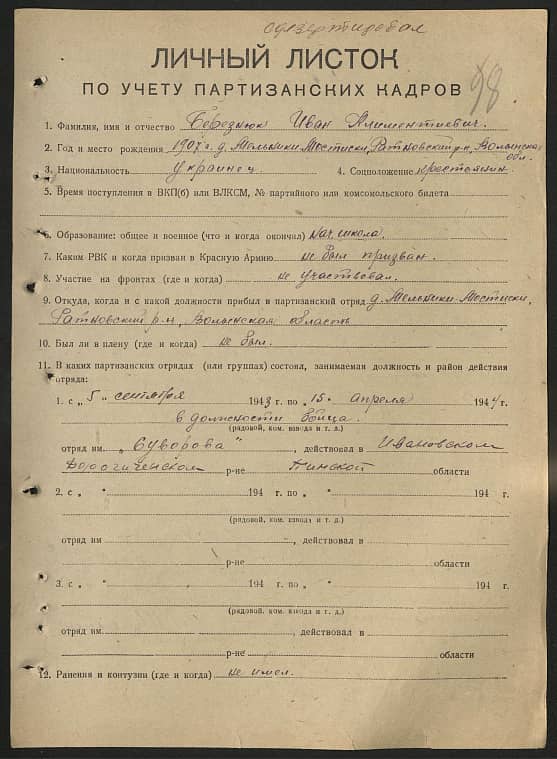 дезертировал
ЛИЧНЫЙ ЛИСТОК
ПО УЧЕТУ ПАРТИЗАНСКИХ КАДРОВ
98
1. Фамилия, имя и отчество Березнюк Иван Климентиевич.
2. Год и место рождения 1907 г. д. Мельники Мостиски, Ратновский р-н, Волынская обл.
3. Национальность украинец. 4. Соцположение крестьянин.
5. Время поступления в ВКП(б) или ВЛКСМ, № партийного или комсомольского билета
6. Образование: общее и военное (что и когда окончал) нач. школа.
7. Каким РВК и когда призван в Красную Армию не был призван.
8. Участие на фронтах (где и когда) не участвовал.
9. Откуда, когда и с какой должности прибыл в партизанский отряд д. Мельники Мостиски,
Ратновский р-н, Волынская область
10. Был ли в плену (где и когда) не был.
11. В каких партизанских отрядах (или группах) состоял, занимаемая должность и район действия
отряда:
1. с „5„ сентября 1943 г. по „15„ апреля 1944 г.
в должности бойца.
(рядовой, ком. взвода и т. д.)
отряд им „Суворова“, действовал в Ивановском
Дорогиченском р-не Пинской области
2. с „ “ 194 г. по „ “ 194 г.
(рядовой, ком. взвода и т. д.)
отряд им , действовал в
р-не области
3. с „ “ 194 г. по „ “ 194 г.
(рядовой, ком. взвода и т. д.)
отряд им , действовал в
р-не области
12. Ранения и контузии (где и когда) не имел.